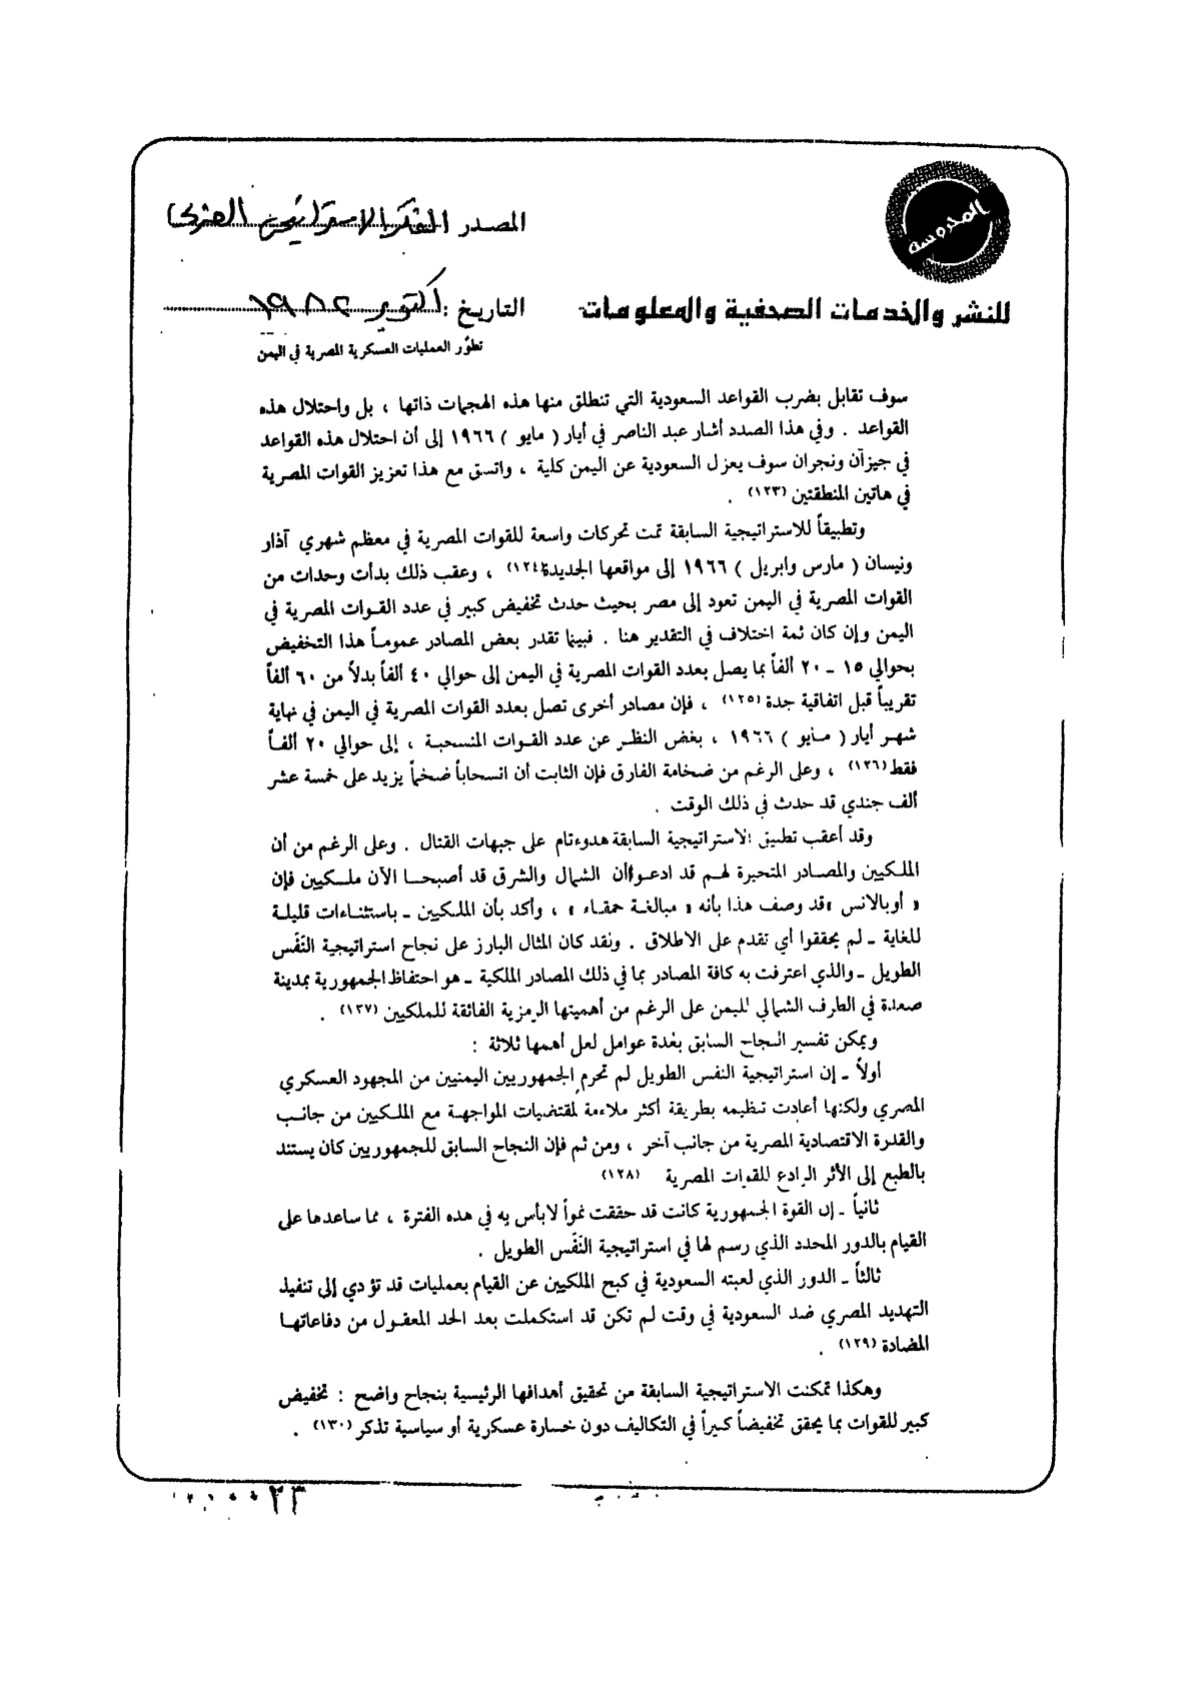 المحروسة
للنشر والخدمات الصحفية والمعلومات
المصدر الفكر الاستراتيجي العربي
التاريخ : أكتوبر ١٩٨٢
تطوّر العمليات العسكرية المصرية في اليمن
سوف تقابل بضرب القواعد السعودية التي تنطلق منها هذه الهجمات ذاتها ، بل واحتلال هذه
القواعد . وفي هذا الصدد أشار عبد الناصر في أيار ( مايو ) ١٩٦٦ إلى أن احتلال هذه القواعد
في جيزآن ونجران سوف يعزل السعودية عن اليمن كلية ، واتسق مع هذا تعزيز القوات المصرية
في هاتين المنطقتين (١٢٣) .
وتطبيقاً للاستراتيجية السابقة تمت تحركات واسعة للقوات المصرية في معظم شهري آذار
ونيسان ( مارس وابريل ) ١٩٦٦ إلى مواقعها الجديدة (١٢٤) ، وعقب ذلك بدأت وحدات من
القوات المصرية في اليمن تعود إلى مصر بحيث حدث تخفيض كبير في عدد القوات المصرية في
اليمن وإن كان ثمة اختلاف في التقدير هنا . فبينما تقدر بعض المصادر عموماً هذا التخفيض
بحوالي ١٥ ـ ٢٠ ألفاً بما يصل بعدد القوات المصرية في اليمن إلى حوالي ٤٠ ألفاً بدلاً من ٦٠ ألفاً
تقريباً قبل اتفاقية جدة (١٢٥) ، فإن مصادر أخرى تصل بعدد القوات المصرية في اليمن في نهاية
شهر أيار ( مايو ) ١٩٦٦ ، بغض النظر عن عدد القوات المنسحبة ، إلى حوالي ٢٠ ألفاً
فقط (١٢٦) ، وعلى الرغم من ضخامة الفارق فإن الثابت أن انسحاباً ضخماً يزيد على خمسة عشر
ألف جندي قد حدث في ذلك الوقت .
وقد أعقب تطبيق الاستراتيجية السابقة هدوء تام على جبهات القتال . وعلى الرغم من أن
الملكيين والمصادر المتحيزة لهم قد ادعوا أن الشمال والشرق قد أصبحا الآن ملكيين فإن
« أوبالانس » قد وصف هذا بأنه « مبالغة حمقاء » ، وأكد بأن الملكيين ـ باستثناءات قليلة
للغاية ـ لم يحققوا أي تقدم على الاطلاق . ولقد كان المثال البارز على نجاح استراتيجية النَفَس
الطويل ـ والذي اعترفت به كافة المصادر بما في ذلك المصادر الملكية ـ هو احتفاظ الجمهورية بمدينة
صعدة في الطرف الشمالي لليمن على الرغم من أهميتها الرمزية الفائقة للملكيين (١٢٧) .
ويمكن تفسير النجاح السابق بعدة عوامل لعل أهمها ثلاثة :
أولاً ـ إن استراتيجية النفس الطويل لم تحرم الجمهوريين اليمنيين من المجهود العسكري
المصري ولكنها أعادت تنظيمه بطريقة أكثر ملاءمة لمقتضيات المواجهة مع الملكيين من جانب
والقدرة الاقتصادية المصرية من جانب آخر ، ومن ثم فإن النجاح السابق للجمهوريين كان يستند
بالطبع إلى الأثر الرادع للقوات المصرية (١٢٨)
ثانياً ـ إن القوة الجمهورية كانت قد حققت نمواً لا بأس به في هذه الفترة ، مما ساعدها على
القيام بالدور المحدد الذي رسم لها في استراتيجية النَفَس الطويل .
ثالثاً ـ الدور الذي لعبته السعودية في كبح الملكيين عن القيام بعمليات قد تؤدي إلى تنفيذ
التهديد المصري ضد السعودية في وقت لم تكن قد استكملت بعد الحد المعقول من دفاعاتها
المضادة (١٢٩) .
وهكذا تمكنت الاستراتيجية السابقة من تحقيق أهدافها الرئيسية بنجاح واضح : تخفيض
كبير للقوات بما يحقق تخفيضاً كبيراً في التكاليف دون خسارة عسكرية أو سياسية تذكر (١٣٠) .
٢٣